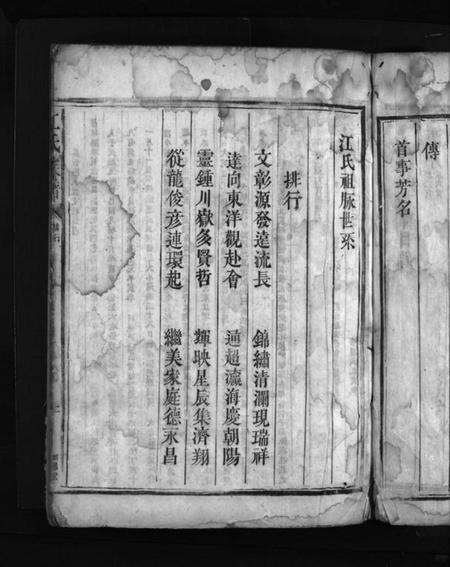 傳
首事芳名
江氏祖脉世系
排行
文彰源發遠流長　錦繡清瀾現瑞祥
達向東洋觀赴會　逈超瀛海慶朝陽
靈鍾川嶽多賢哲　輝映星辰集濟翔
從龍俊彦連環起　繼美家庭德永昌
江氏族譜